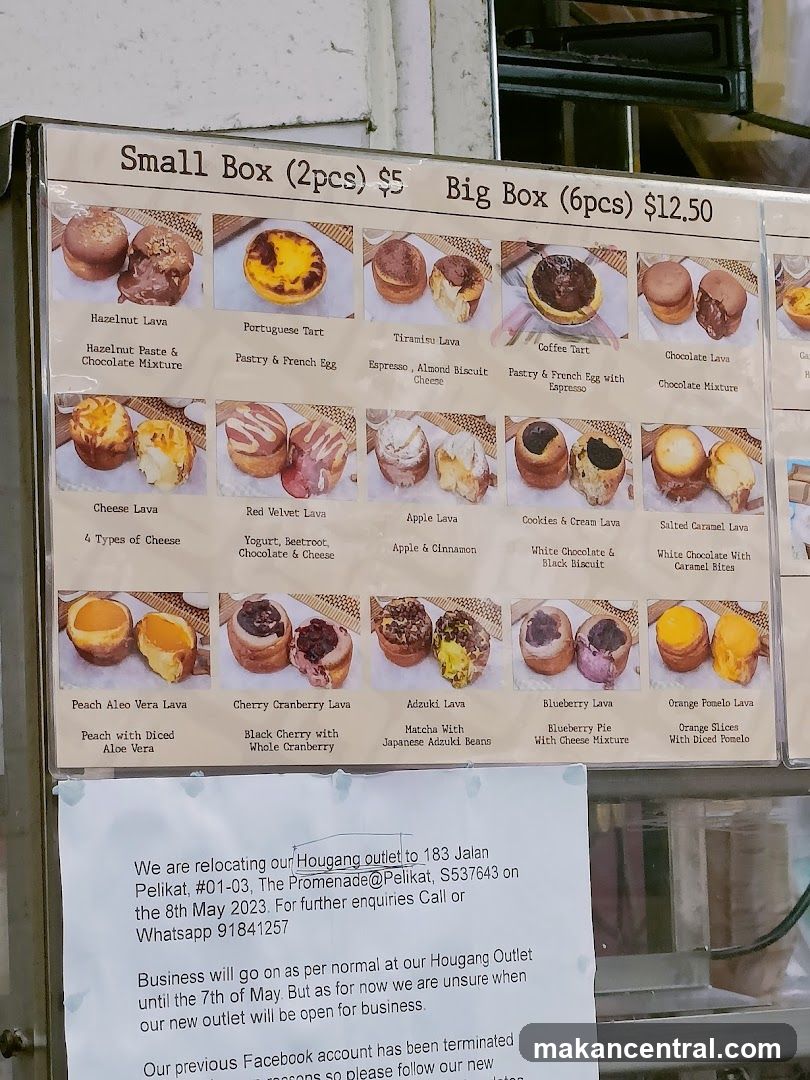 Small Box (2pcs) $5 Big Box (6pcs) $12.50
Hazelnut Lava
Hazelnut Paste &
Chocolate Mixture
Portuguese Tart
Pastry & French Egg
Tiramisu Lava
Espresso , Almond Biscuit
Cheese
Coffee Tart
Pastry & French Egg with
Espresso
Chocolate Lava
Chocolate Mixture
Cheese Lava
4 Types of Cheese
Red Velvet Lava
Yogurt, Beetroot,
Chocolate & Cheese
Apple Lava
Apple & Cinnamon
Cookies & Cream Lava
White Chocolate &
Black Biscuit
Salted Caramel Lava
White Chocolate With
Caramel Bites
Peach Aleo Vera Lava
Peach with Diced
Aloe Vera
Cherry Cranberry Lava
Black Cherry with
Whole Cranberry
Adzuki Lava
Matcha With
Japanese Adzuki Beans
Blueberry Lava
Blueberry Pie
With Cheese Mixture
Orange Pomelo Lava
Orange Slices
With Diced Pomelo
We are relocating our Hougang outlet to 183 Jalan
Pelikat, #01-03, The Promenade@Pelikat, S537643 on
the 8th May 2023. For further enquiries Call or
Whatsapp 91841257
Business will go on as per normal at our Hougang Outlet
until the 7th of May. But as for now we are unsure when
our new outlet will be open for business.
Our previous Facebook account has been terminated
so please follow our new
makancentral.com